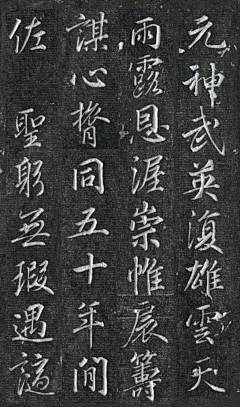 元神武英雄雲天
雨露恩渥崇帷展籌
謀心膂同五十年間
佐 聖躬無瑕遇謫